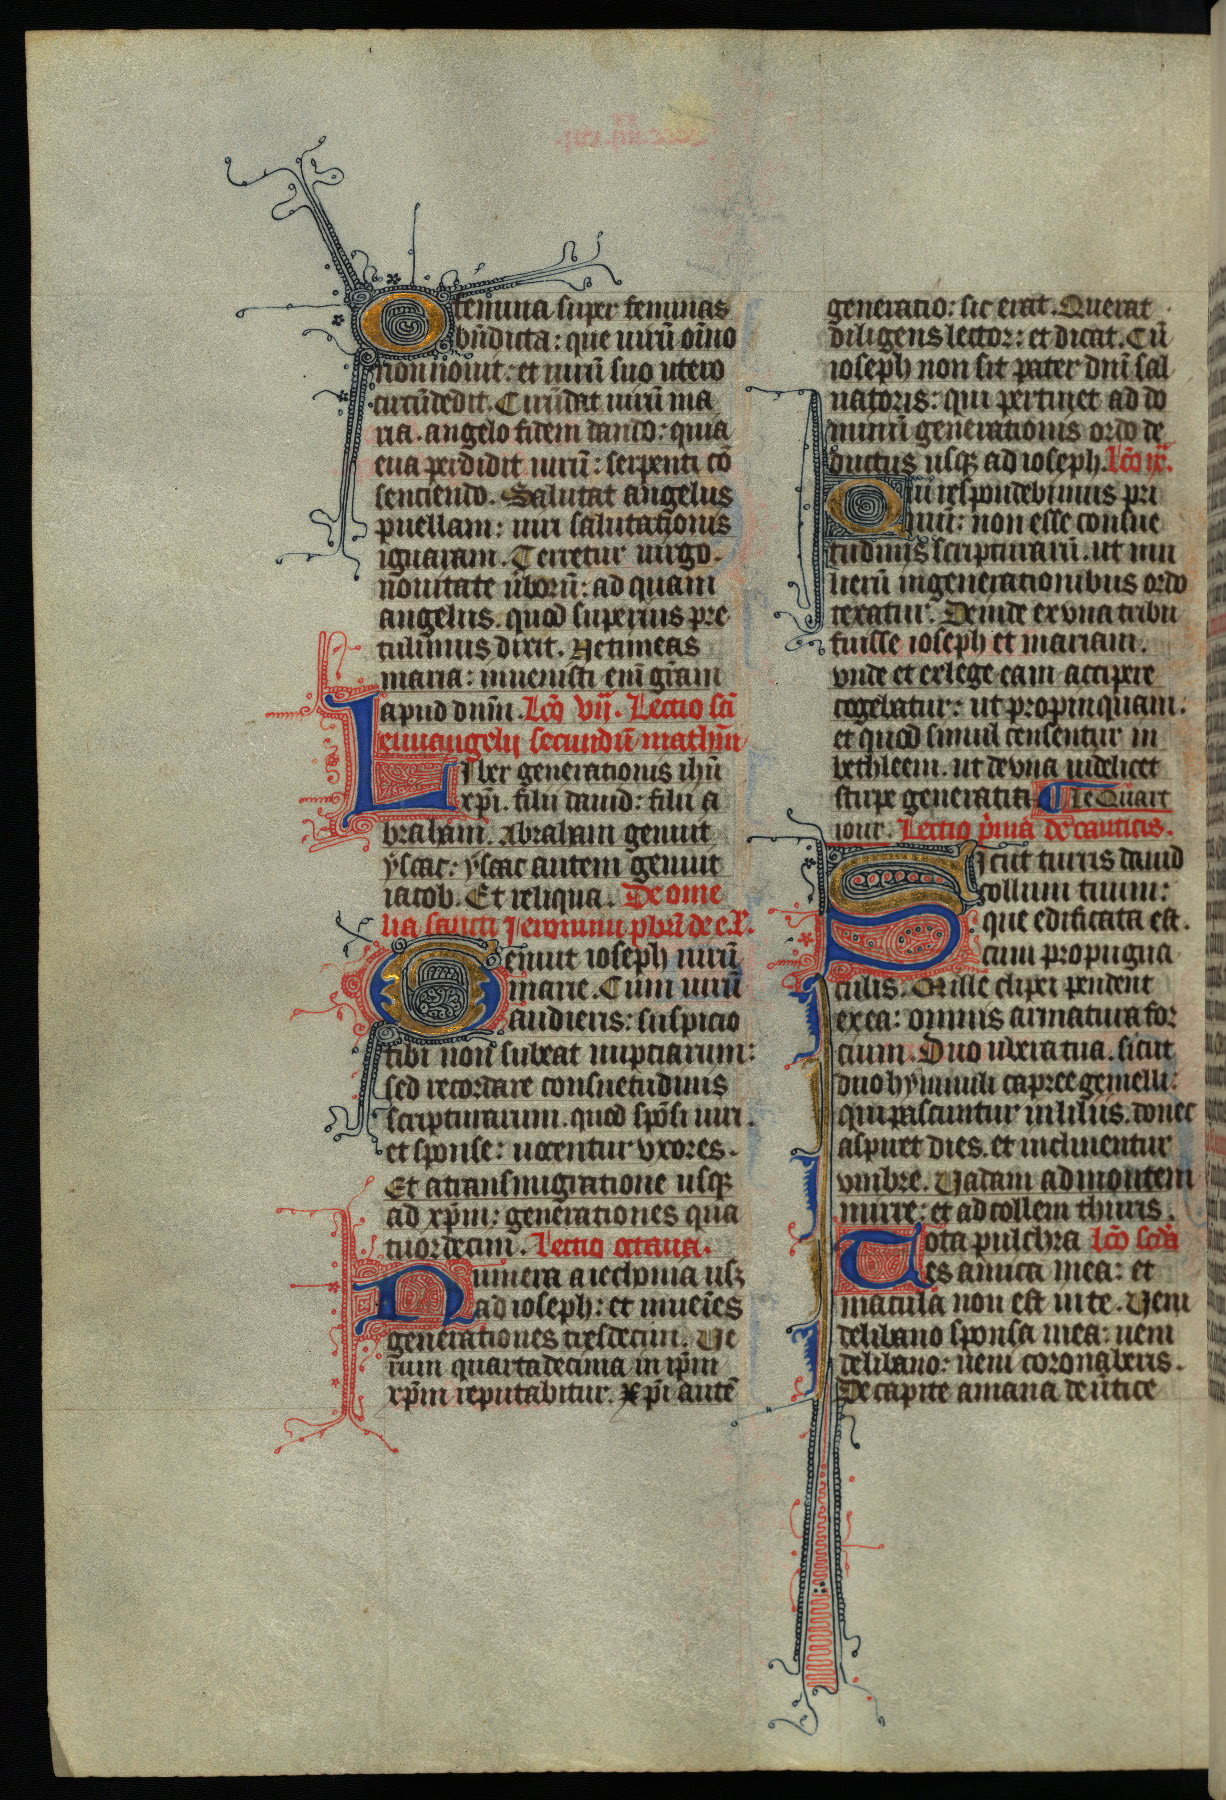 O femina super feminas
bn̄dicta: que uirū oīno
non nouit: et uirū suo utero
circūdedit. Circūdat uirū ma
ria. angelo fidem dando: quia
eua perdidit uirū: serpenti cō
senciendo. Salutat angelus
puellam: uiri salutationis
ignaram. Terretur uirgo.
nouitate ūborū: ad quam
angelus. quod superius pre
tulimus dixit. Ne timeas
maria: inuenisti enī gr̄am
apud dnm̄. Lcō vij. Lectio scī
euuangelij secundū mathm̄
Liber generationis ihū
xp̄i. filii dauid: filii a
braham. Abraham genuit
ysaac: ysaac autem genuit
iacob. Et reliqua. De ome
lia sancti Jeronimi p̄br̄i de e.x.
Genuit ioseph uirū
marie. Cum uirū
audieris: suspicio
tibi non subeat nuptiarum:
sed recordare consuetudinis
scripturarum. quod spōsi uiri.
et sponse: uocentur vxores.
Et a transmigratione usqꝫ
ad xp̄m: generationes qua
tuordecim. Lectio octaua.
Numera a iechonia usqꝫ
ad ioseph: et inueīes
generationes tresdecim. Ve
rum quartadecima in ip̄m
xp̄m reputabitur. Xp̄i autē
generatio: sic erat. Querat
diligens lector: et dicat. Cū
ioseph non sit pater dnī sal
uatoris: qui pertinet ad do
minū generationis ordo de
ductus usqꝫ ad ioseph. Lcō ix.
Cui respondebimus pri
mū: non esse consue
tudinis scripturarū. ut mu
lierū in generationibus ordo
texatur. Deinde ex vna tribu
fuisse ioseph et mariam.
vnde et ex lege eam accipere
cogebatur: ut propinquam.
et quod simul censentur in
bethleem. ut de vna uidelicet
stirpe generati. Le Quart
iour. Lectio p̄ma de canticis.
Sicut turris dauid
collum tuum:
que edificata est.
cum propugna
culis. Mille clipei pendent
ex ea: omnis armatura for
cium. Duo ubera tua. sicut
duo hynnuli capree gemelli:
qui pascuntur in liliis. donec
aspiret dies. et inclinentur
vmbre. Vadam ad montem
mirre: et ad collem thuris.
Tota pulchra Lcō scd̄a
es amica mea: et
macula non est in te. Veni
de libano sponsa mea: ueni
de libano: ueni coronaberis.
De capite amana de ūtice